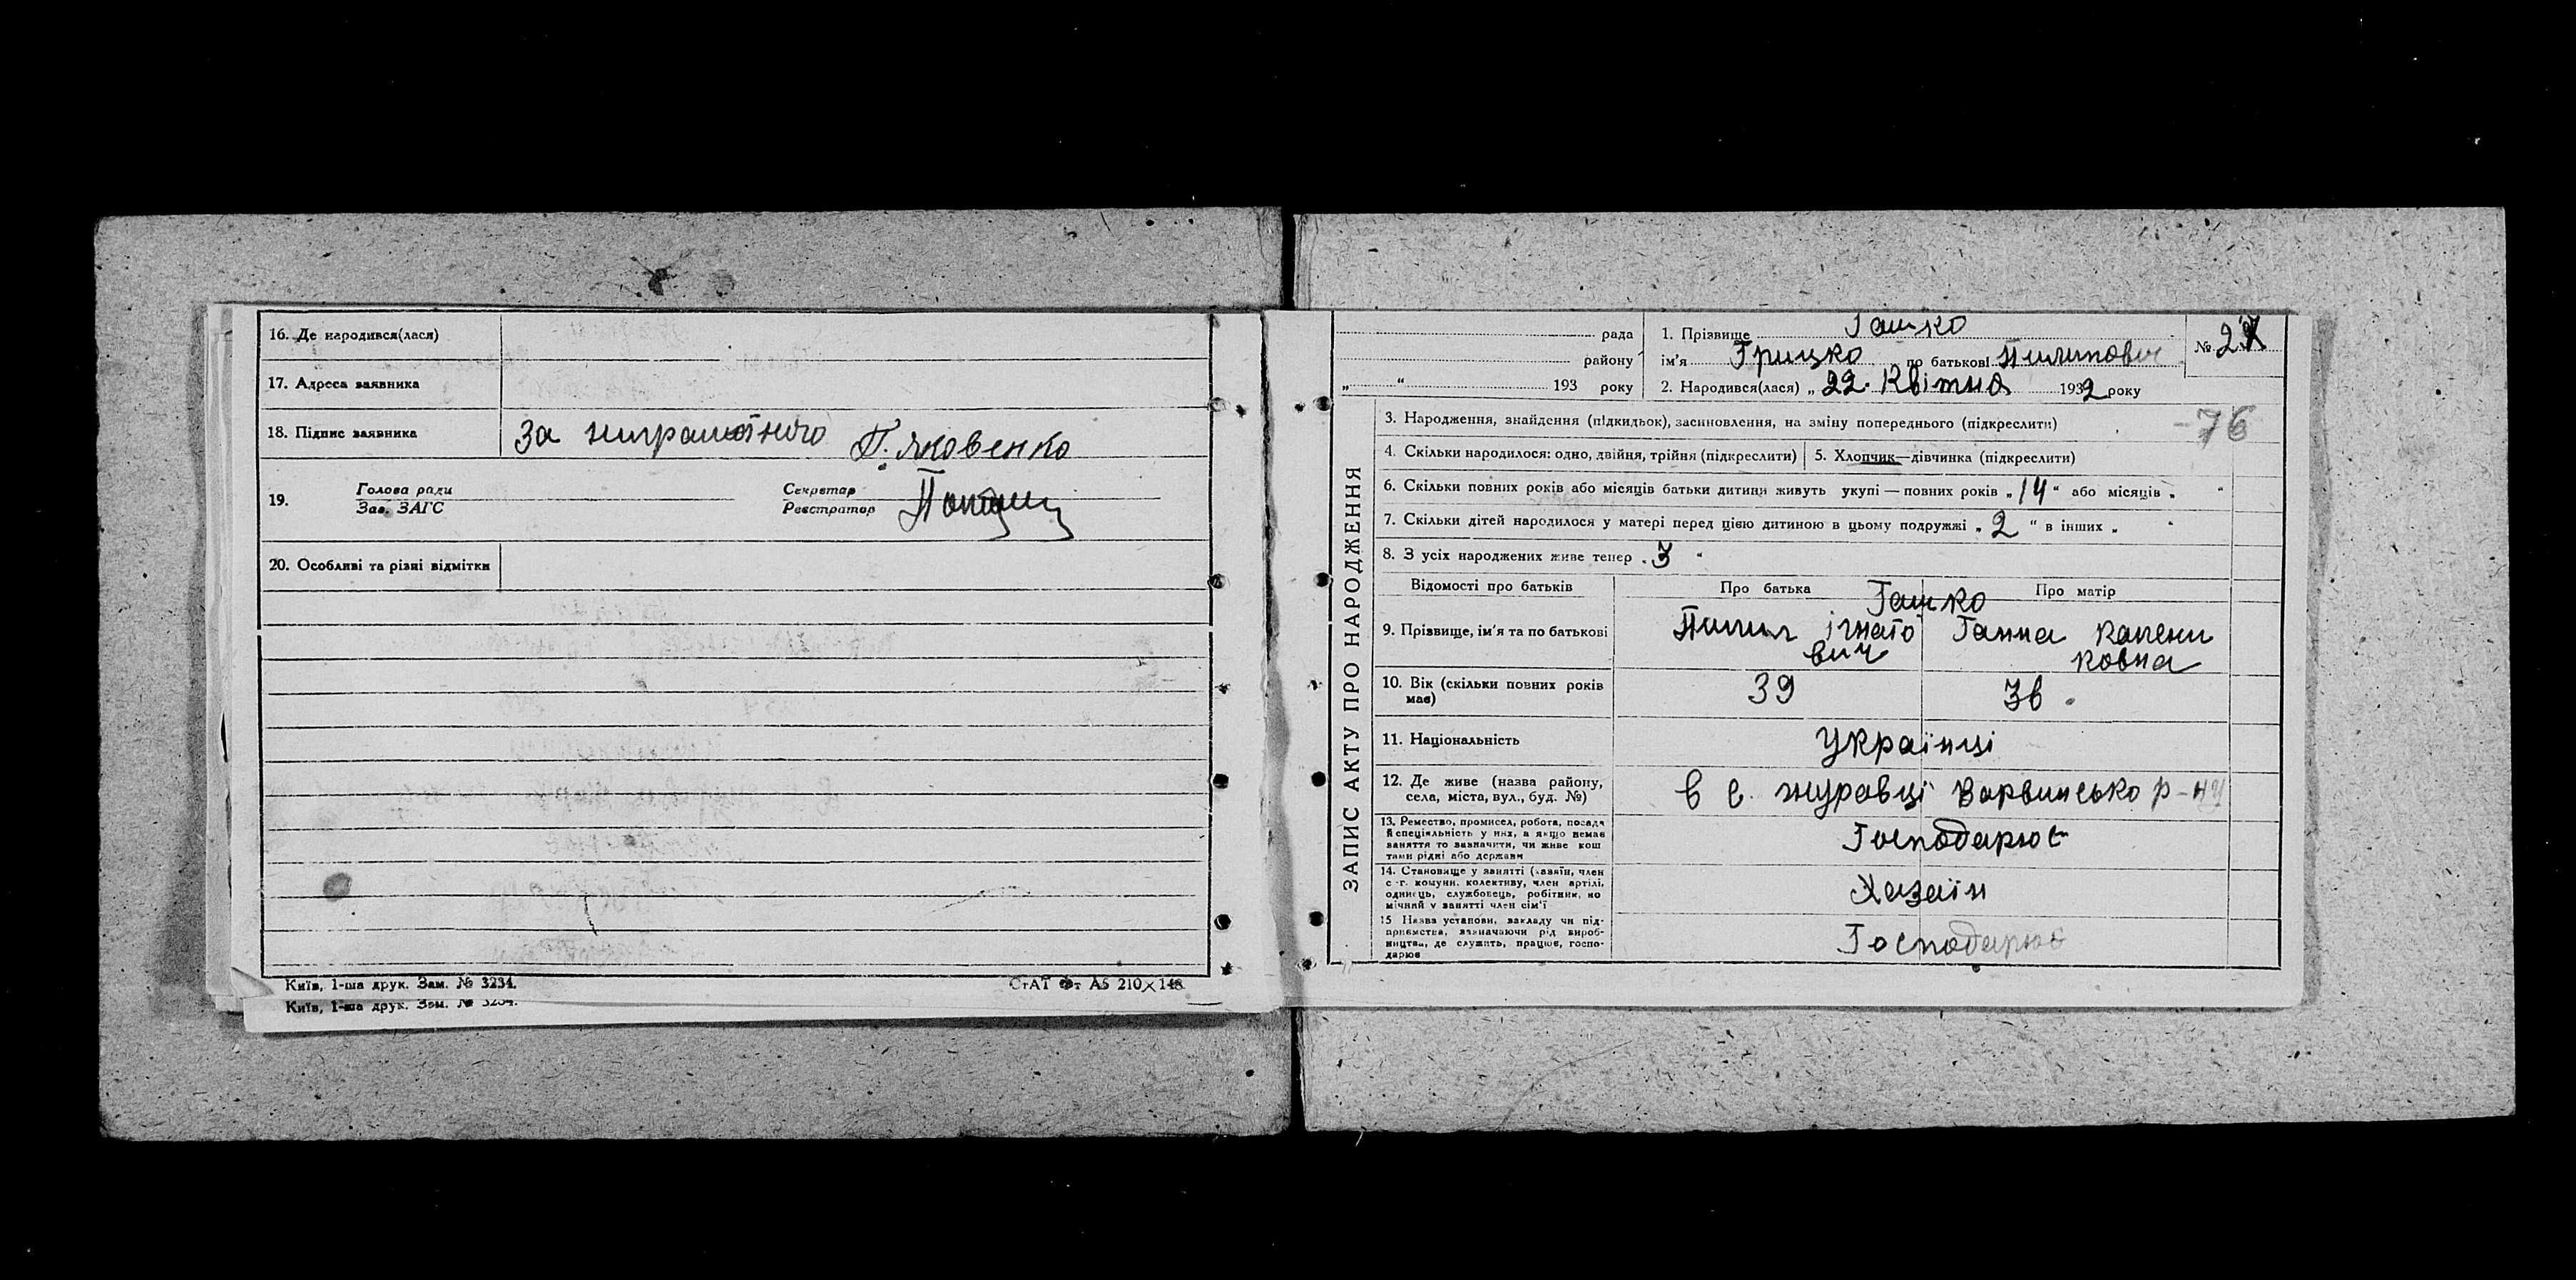 16. Де народився(лася)
17. Адреса заявника
18. Підпис заявника За ниграмотного П. Яковенко
19. Голова ради Секретар
Зав. ЗАГС Реєстратор
20. Особливі та різні відмітки
Київ, 1-ша друк. Зам. № 3234. СтАТ Фт А5 210×148
Київ, 1-ша друк. Зам. № 3234.
ЗАПИС АКТУ ПРО НАРОДЖЕННЯ
рада 1. Прізвище Гашко
району ім'я Грицко по батькові Пилипович № 27
„ “ 193 року 2. Народився(лася) „ 22. Квітня 1932 року
3. Народження, знайдення (підкидьок), засиновлення, на зміну попереднього (підкреслити) -76
4. Скільки народилося: одно, двійня, трійня (підкреслити) 5. Хлопчик—дівчинка (підкреслити)
6. Скільки повних років або місяців батьки дитини живуть укупі — повних років „ 14 “ або місяців „ “
7. Скільки дітей народилося у матері перед цією дитиною в цьому подружжі „ 2 “ в інших „ “
8. З усіх народжених живе тепер „ 3 “
Відомості про батьків Про батька Про матір
Гашко
9. Прізвище, ім'я та по батькові Пилип ігнато Ганна
вич ковна
10. Вік (скільки повних років 39 36
має)
11. Національність Українці
12. Де живе (назва району, в с. журавці Варвинсько р-ну
села, міста, вул., буд. №)
13. Ремество, промисел, робота, посада
й спеціяльність у них, а якщо немає Господарює
заняття то зазначити, чи живе кош
тами рідні або держави
14. Становище у занятті (хазяїн, член
с.-г. комуни, колективу, член артілі, Хазаїн
одинець, службовець, робітник, по
мічний у занятті член сім'ї
15 Назва установи, закладу чи під-
приємства, зазначаючи рід вироб- Господарює
ництва, де служить, працює, госпо-
дарює